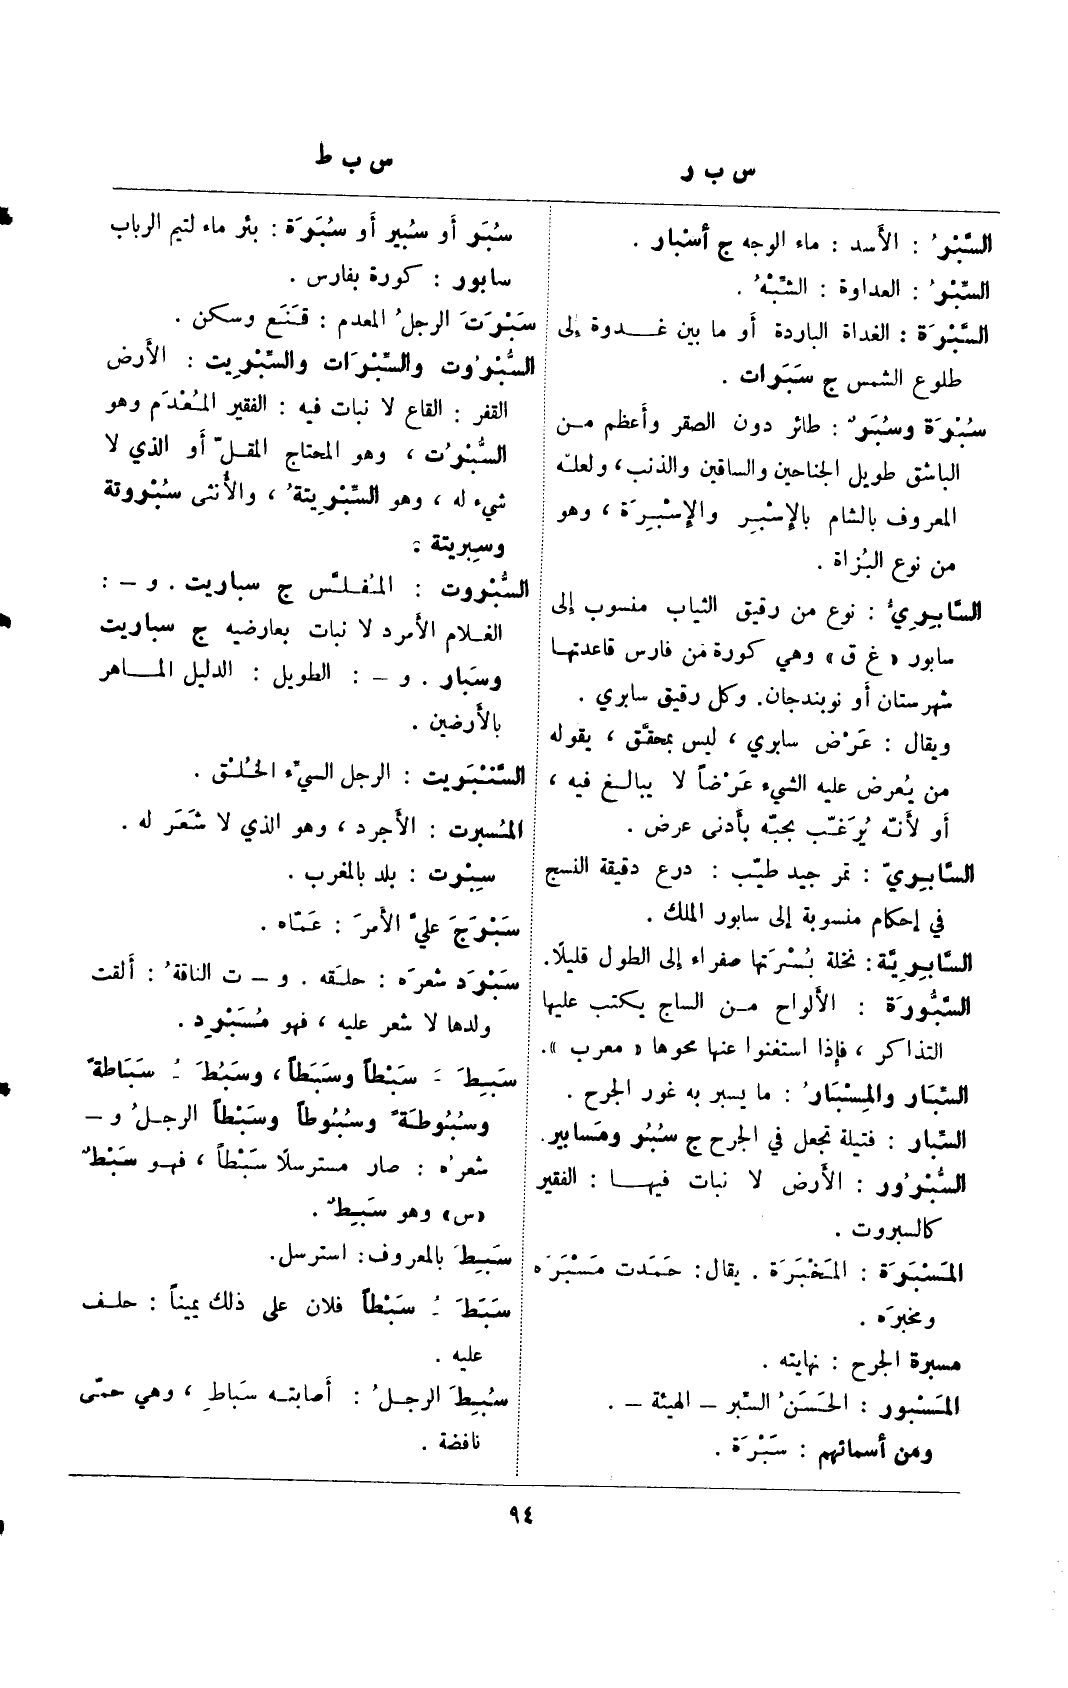 س ب ر
س ب ط
السَّبْرُ : الأسد : ماء الوجه ج أسْبار .
السِّبْرُ : العداوة : الشَّبْهُ .
السَّبْرَة : الغداة الباردة أو ما بين غدوة إلى
طلوع الشمس ج سَبَرات .
سُبْرَة وسُبَرٌ : طائر دون الصقر وأعظم من
الباشق طويل الجناحين والساقين والذنب، ولعله
المعروف بالشام بالإسْبِر والإسْبِرَة ، وهو
من نوع البُزاة .
السَّابِرِيُّ : نوع من رقيق الثياب منسوب إلى
سابور « غ ق » وهي كورة من فارس قاعدتها
شهرستان أو نوبندجان. وكل رقيق سابري .
ويقال : عَرْض سابري ، ليس بمحقَّق ، يقوله
من يُعرض عليه الشيء عَرْضاً لا يبالغ فيه ،
أو لأنّه يُرَغَّب بجبّه بأدنى عرض .
السَّابِرِيّ : تمر جيد طيّب : درع دقيقة النسج
في إحكام منسوبة إلى سابور الملك .
السَّابِرِيَّة : نخلة بُسْرَتها صفراء إلى الطول قليلًا.
السَّبُّورَة : الألواح من الساج يكتب عليها
التذاكر ، فإذا استغنوا عنها محوها « معرب ».
السِّبَار والمِسْبَارُ : ما يسبر به غور الجرح .
السِّبار : فتيلة تجعل في الجرح ج سُبُر ومَسابير.
السُّبْرُور : الأرض لا نبات فيها : الفقير
كالسبروت .
المَسْبَرَة : المَخْبَرَة . يقال : حَمَدت مَسْبَرَه
ومخبرَه .
مسبرة الجرح : نهايته .
المَسْبور : الحَسَنُ السَّبر – الهيئة – .
ومن أسمائهم : سَبْرَة .
سُبَر أو سُبير أو سُبَرَة : بئر ماء لتيم الرباب
سابور : كورة بفارس .
سَبْرَتَ الرجلُ المعدم : قَنَع وسكن .
السُّبْرُوت والسِّبْرَات والسِّبْرِيت : الأرض
القفر : القاع لا نبات فيه : الفقير المُعْدَم وهو
السُّبْرُت ، وهو المحتاج المقلّ أو الذي لا
شيء له ، وهو السِّبْرِيتةُ ، والأنثى سُبْروتة
وسِبريتة .
السُّبْروت : المُفلَّس ج سباريت . و – :
الغلام الأمرد لا نبات بعارضيه ج سباريت
وسَبار . و – : الطويل : الدليل الماهر
بالأرضين .
السَّنْبَريت : الرجل السيء الخُلْق .
المُسبرت : الأجرد ، وهو الذي لا شَعَر له .
سِبْرت : بلد بالمغرب .
سَبْرَجَ عليَّ الأمرَ : عَمّاه .
سَبْرَد شعرَه : حلَقه . و – ت الناقةُ : ألقت
ولدها لا شعر عليه ، فهو مُسَبْرد .
سَبِطَ َ سَبْطاً وسَبَطاً ، وسَبُطَ ُ سَبَاطةً
وسُبُوطَةً وسُبُوطاً وسَبْطاً الرجلُ و –
شعرُه : صار مسترسلًا سَبْطاً ، فهو سَبْطٌ
«س» وهو سَبِطٌ .
سَبِطَ بالمعروف : استرسل.
سَبَطَ ُ سَبْطاً فلان على ذلك يميناً : حلف
عليه .
سُبِطَ الرجلُ : أصابته سَباطِ ، وهي حمّى
نافضة .
٩٤